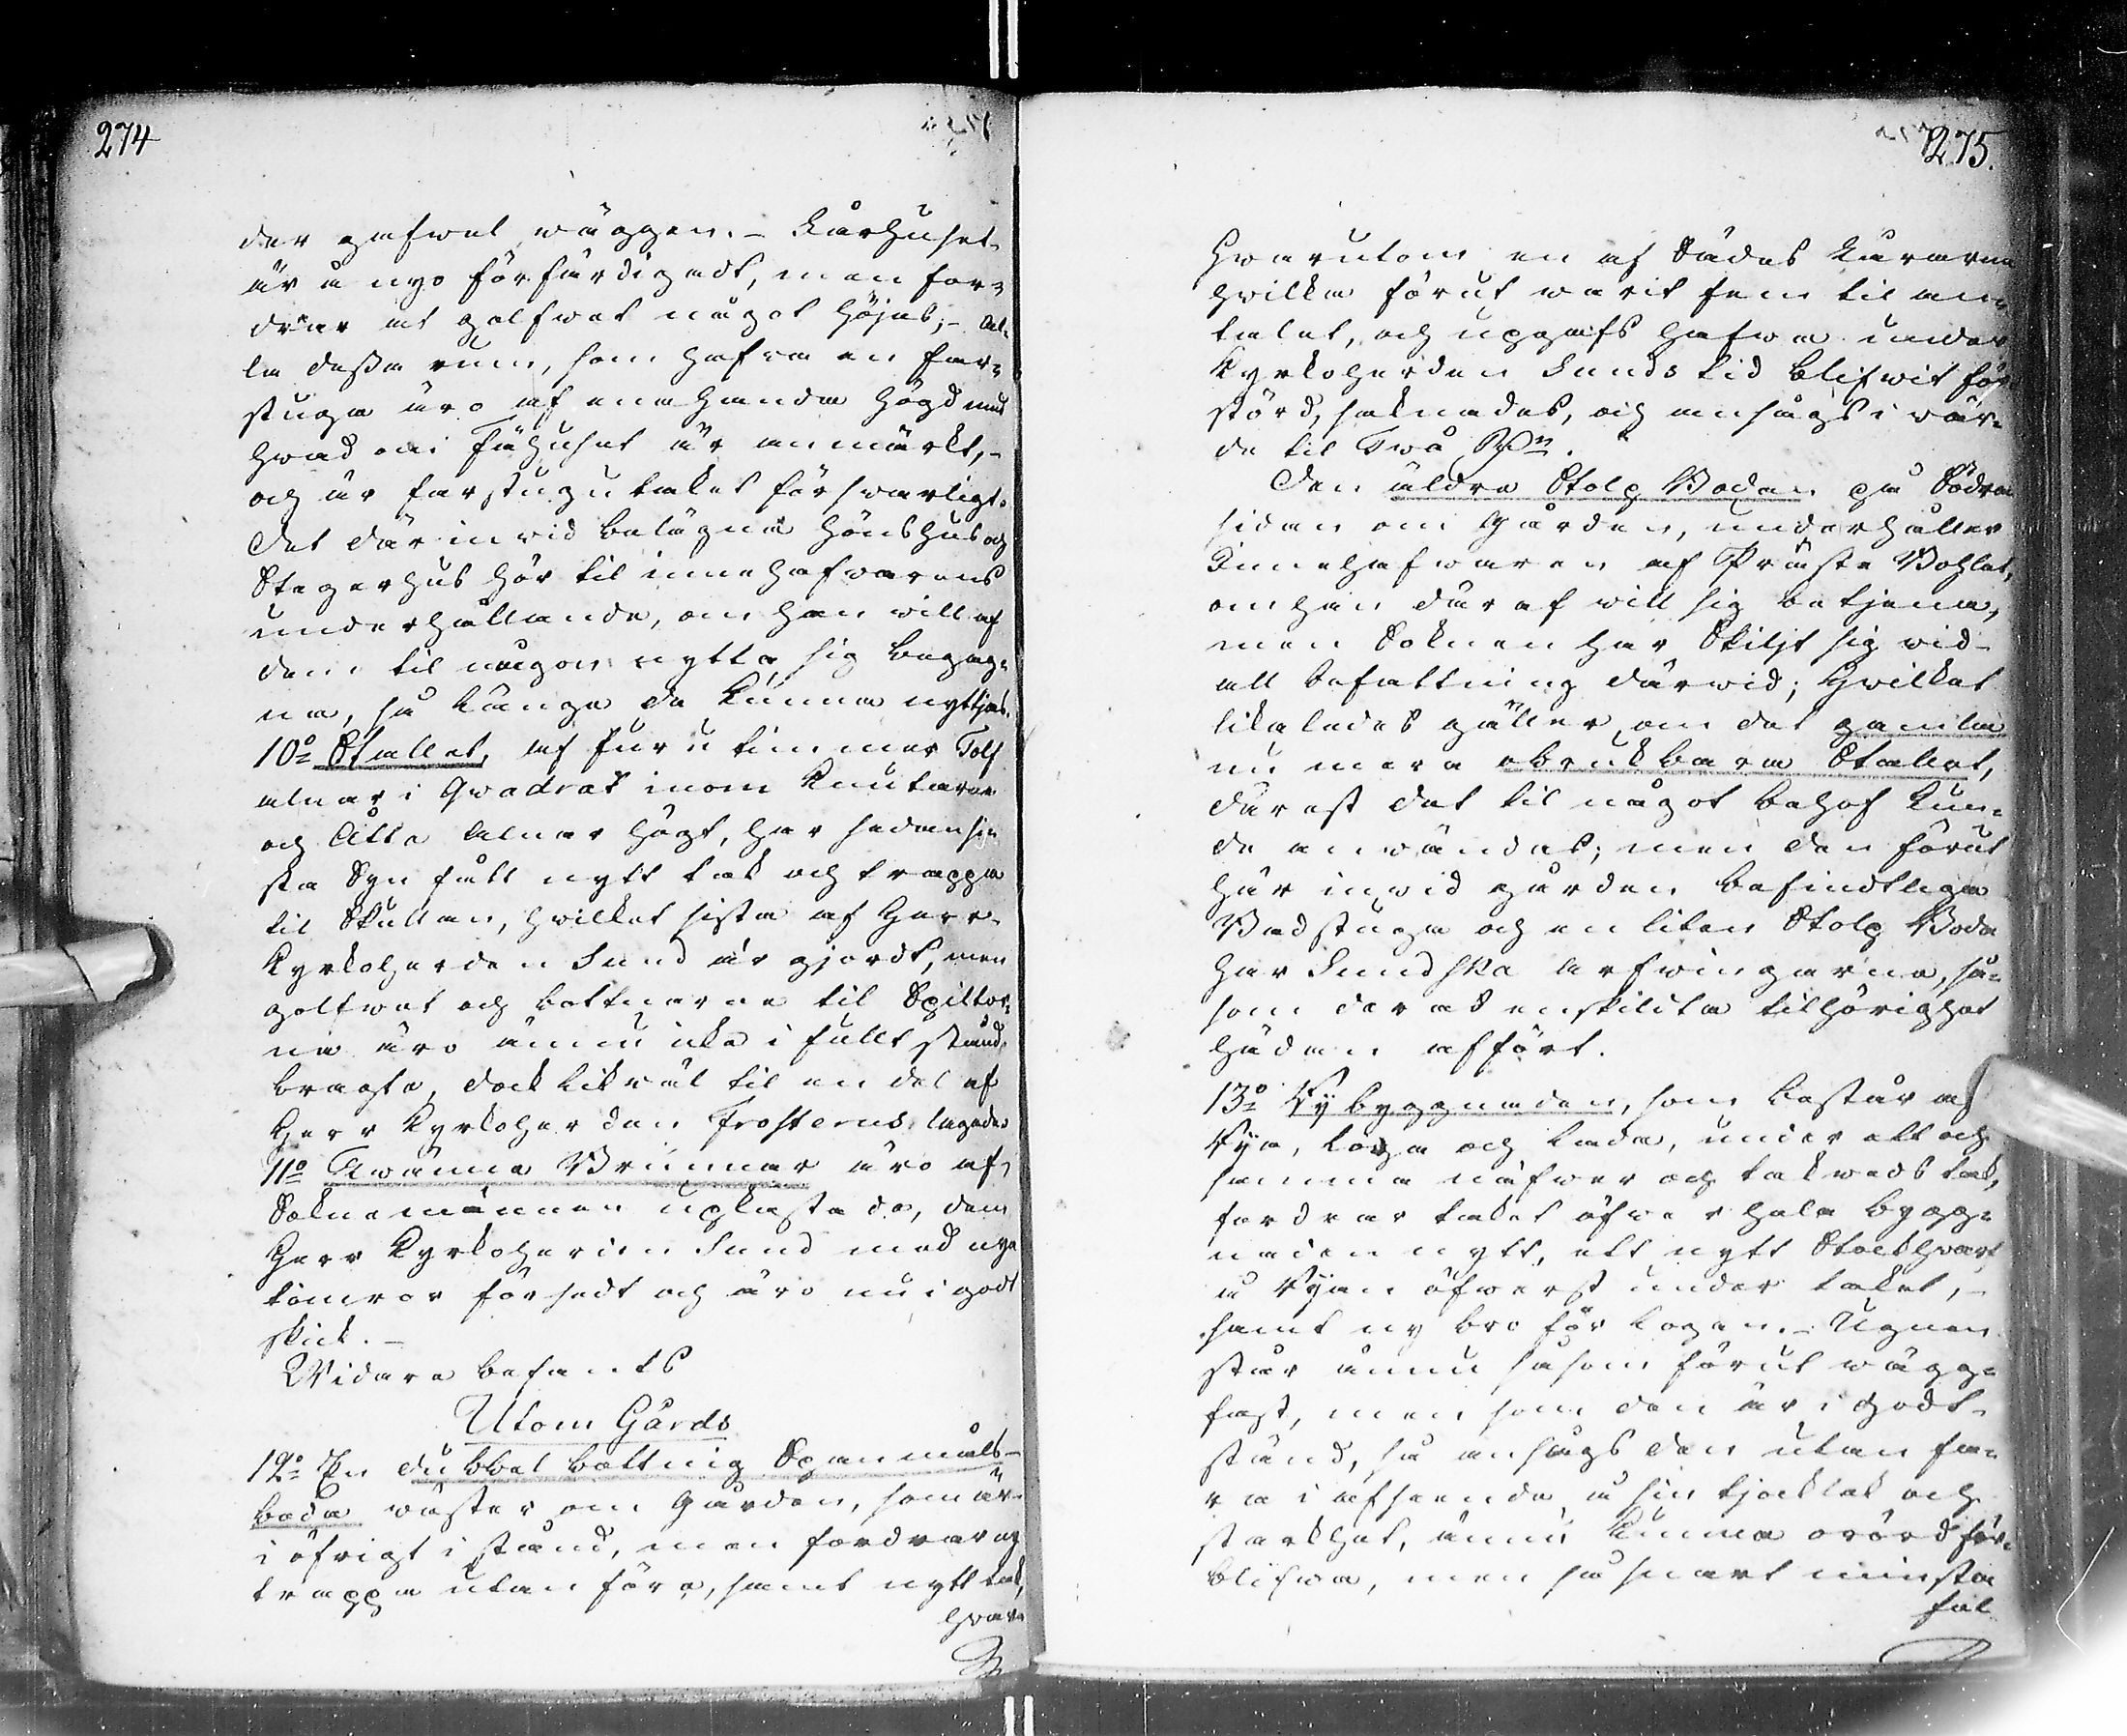 274
der gafwel wäggen. – Fårhuset
är å nyo förfärdigadt, men for¬
drar at golfwet något höjes; – Al¬
la dessa rum, som hafwa en far¬
stuga äro af enehanda högd med
hwad om Fähuset är anmärkt, –
och är farstugu taket förswarligt.
Det där inwid belägne Hönshus och
Stegerhus hör til innehafwarens
underhållande, om han will af
dem til någon nytta sig begag¬
na, så länge de kunna nyttjas.
10o Stallet, af furu timmer Tolf
alnar i Qwadrat inom knutarne
och Åtta alnar högt, har sedan si¬
sta Syn fått nytt tak och trappa
til Skullen, hwilket sista af Herr
Kyrkoherden Sund är gjordt, men
golfwet och bottnarne til Spiltor¬
ne äro ännu icke i fullt stånd
bragte, dock likwäl til en del af
Herr Kyrkoherden Frosterus lagade
11o Twänne Brunnar äro af
Soknemännen upkastade, dem
Herr Kyrkoherden Sund med nya
timror försedt och äro nu i godt
skick. –
Widare befants
Utom Gårds
12o En dubbel bottnig Spanmåls-
boda wäster om gården, som är
i öfrigt i stånd, men fordrar ny
trappa utanföre, samt nytt tak,
hwar¬
275.
Hwarutom en af Sädes Lårarna
hwilka förut warit fem til an¬
talet, och uppgifs hafwa under
Kyrkoherden Sunds tid blifwit för¬
störd, saknades, och ansågs i wär¬
de til Twå Rd.
Den äldre Stolp Boden på Södra
sidan om gården, underhåller
Innehafwaren af Präste Bohlet,
om han däraf will sig betjena,
men Soknen har Skiljt sig wid
all befattning därwid; Hwilket
likaledes gäller om det gamla
nu mera obrukbara Stallet,
därest det til något behof kun¬
de användas; men den förut
här inwid gården befindtliga
Badstuga och en liten Stolp Boda
har Sundska Arfwingarne, så¬
som deras enskilda tillhörighet
hädan affört.
13o Rij byggnaden, som består af
Rija, loga och lada, under ett och
samma näfwer och takweds tak,
fordrar taket öfwer hela bygg¬
naden nytt, ett nytt Stockhwarf
å Rijan öfwerst under taket, –
samt ny bro för logen. – Ugnen
står ännu såsom förut wägg¬
fast, men som den är i godt
stånd, så ansågs den utan fa¬
ra i afseende å sin tjocklek och
starkhet, ännu kunna orörd för¬
blifwa, men så snart minsta
fel